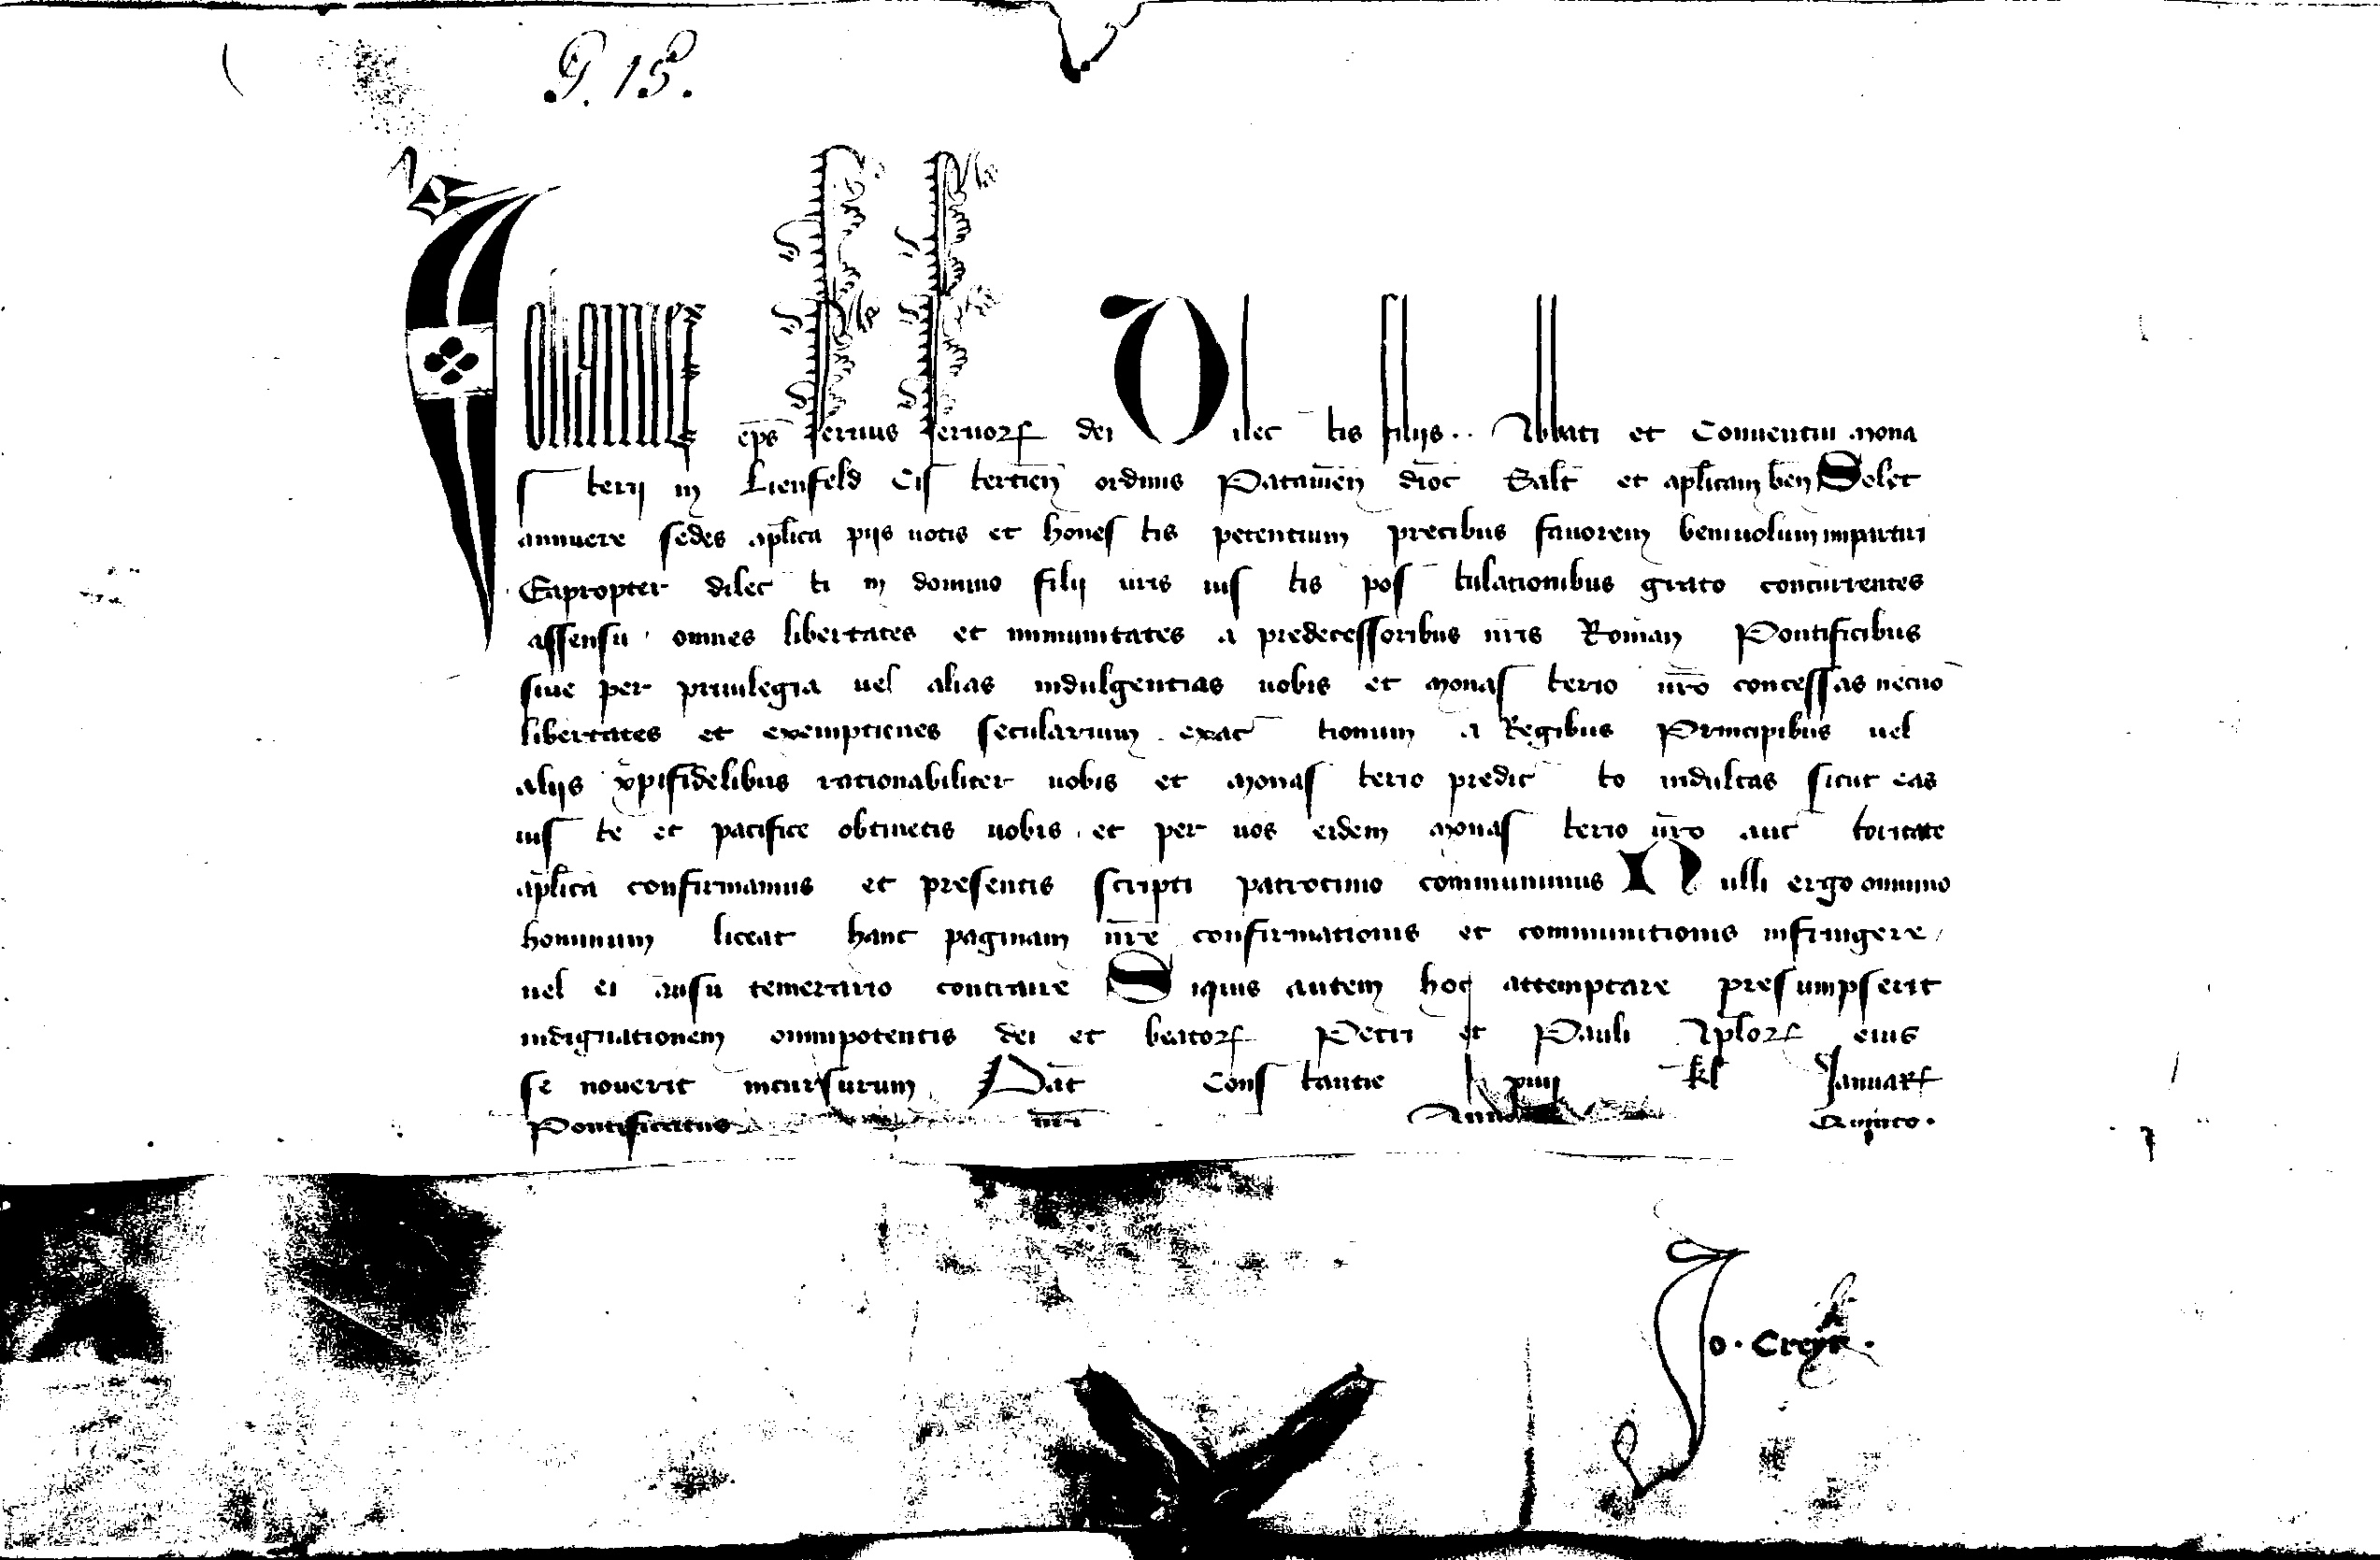 G. 15.
Iohannes ep̄s seruus seruorꝝ dei Dilectis filijs .. Abbati et Conuentui Mona
sterij in Lienfeld Cistercień ordinis Patauień dioc̄ Salt̄ et aplicam beñ Solet
annuere sedes aplica pijs uotis et honestis petentium precibus fauorem beniuolum impartiri
Eapropter dilecti in domino filij uris iustis postulationibus grato concurrentes
assensu omnes libertates et immunitates a predecessoribus nris Romań Pontificibus
siue per priuilegia uel alias indulgentias uobis et Monasterio uro concessas necno
libertates et exemptiones secularium exactionum a Regibus Principibus uel
alijs xpifidelibus rationabiliter uobis et Monasterio predicto indultas sicut eas
iuste et pacifice obtinetis uobis et per uos eidem Monasterio uro auctoritate
aplica confirmamus et presentis scripti patrocinio communimus Nulli ergo omnino
hominum liceat hanc paginam nre confirmationis et communitionis infringere
uel ei ausu temerario contraire Siquis autem hoc attemptare presumpserit
indignationem omnipotentis dei et beatorꝝ Petri et Pauli Aplorꝝ eius
se nouerit incursurum Dat̄ Constantie kl Januarꝝ
Pontificatus nri Anno Quinto.
Jo.